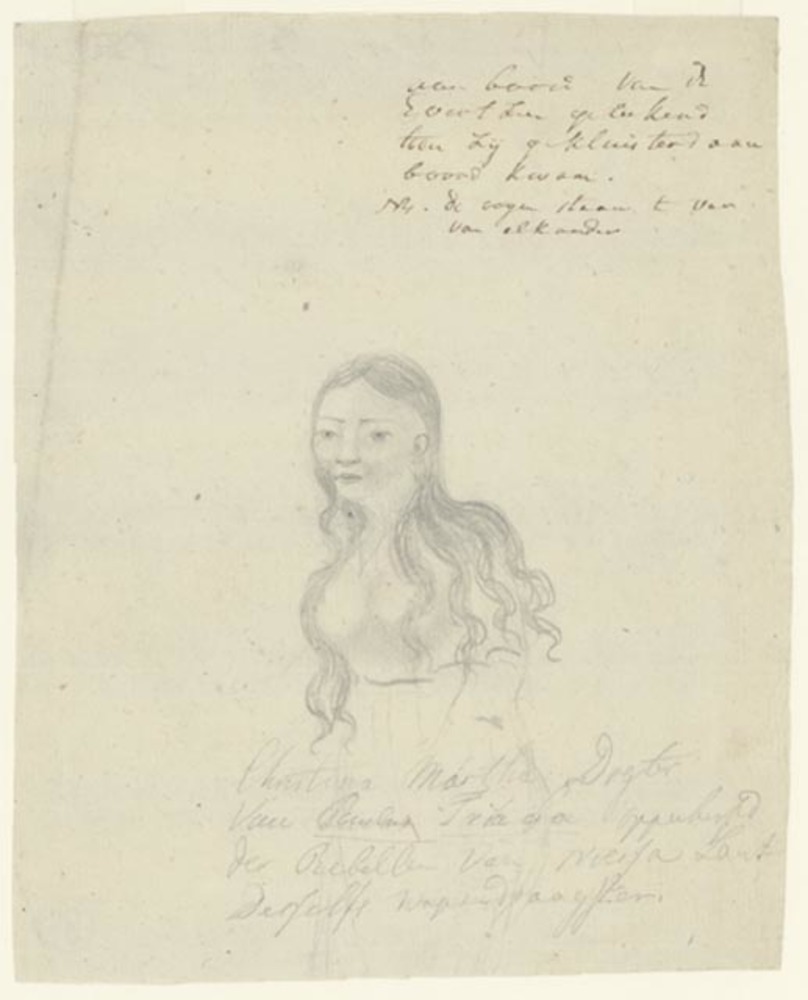 aan boord van de
Evertzen getekend
toen zij gekluisterd aan
boord kwam.
de oogen staan te ver
van elkander
Christina Martha Dogter
van Paulus Triago opperhoofd
der Rebellen van Noesa Laut
Deszelfs wapendraagster.